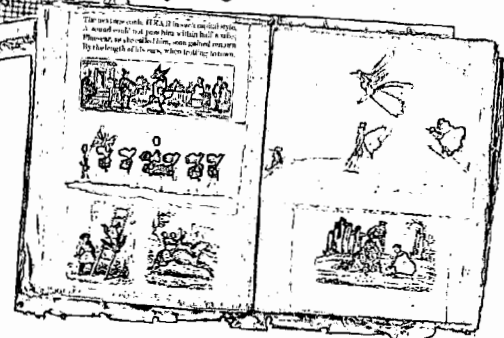 The next one could HEAR in such capital style,
A sound could not pass him within half a mile;
he called him, soon gained renown
By the length of his ears, when trotting to town.